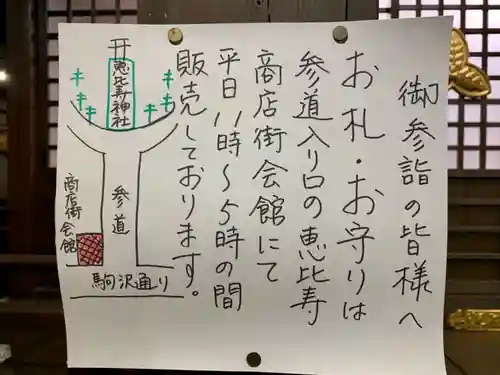 御参詣の皆様へ
お札・お守りは
参道入り口の恵比寿
商店街会館にて
平日11時〜5時の間
販売しております。
恵比寿神社
参道
商店街会館
駒沢通り